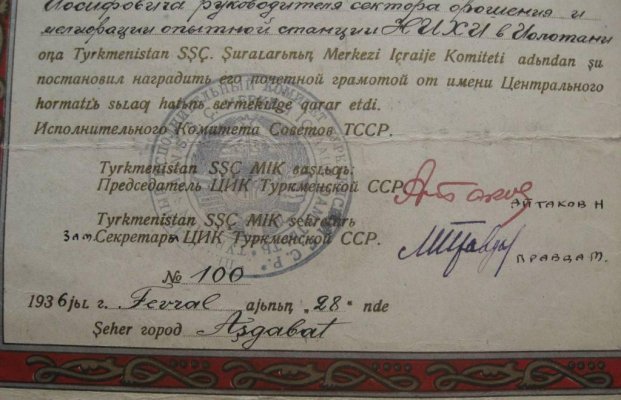 Иосифовича руководителя сектора орошения и
мелиорации опытной станции НИХИ в Иолотани
oɲa Tyrkmenistan SŞÇ. Şuralarьnьɲ Merkezi Içraije Komiteti adьndan şu
постановил наградить его почетной грамотой от имени Центрального
hormatlь sьlaq hatьnь bermeklige qarar etdi.
Исполнительного Комитета Советов ТССР.
Tyrkmenistan SŞÇ MIK başlьqь:
Председатель ЦИК Туркменской ССР
АЙТАКОВ Н
Tyrkmenistan SŞÇ MIK sekretarь
зам. Секретаря ЦИК Туркменской ССР.
ПРАВДА М.
№ 100
1936 jьl г. Fevral ajьnьɲ „28" nde
Şeher город Aşgabat